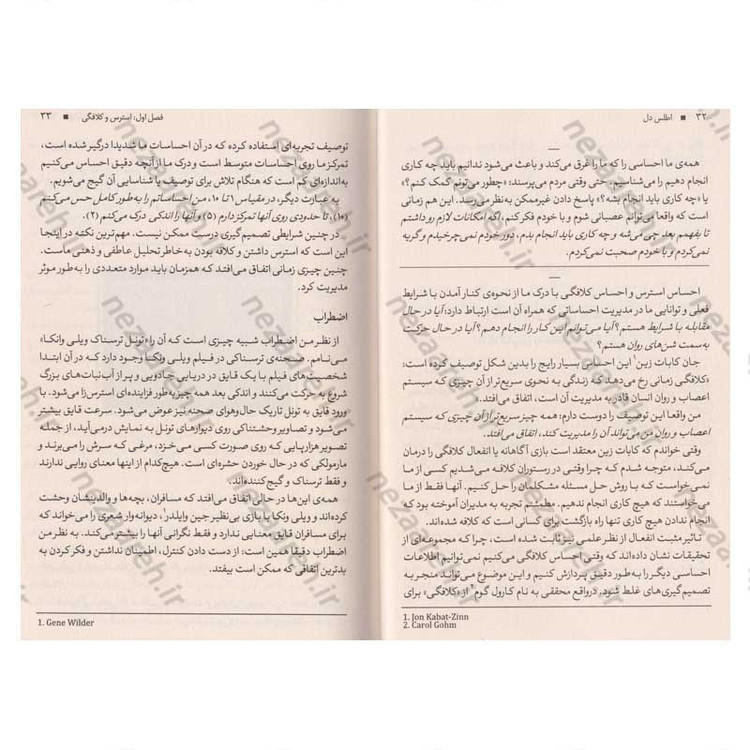 ۳۲ ■ اطلس دل
همه‌ی ما احساسی را که ما را غرق می‌کند و باعث می‌شود ندانیم باید چه کاری
انجام دهیم را می‌شناسیم. حتی وقتی مردم می‌پرسند: «چطور می‌تونم کمک کنم؟»
یا «چه کاری باید انجام بشه؟» پاسخ دادن غیرممکن به‌نظر می‌رسد. این هم زمانی
است که واقعا می‌توانم عصبانی شوم و با خودم فکر کنم، اگه امکانات لازم رو داشتم
تا بفهمم بعد چی می‌شه و چه کاری باید انجام بدم، دور خودم نمی‌چرخیدم و گریه
نمی‌کردم و با خودم صحبت نمی‌کردم.
احساس استرس و احساس کلافگی با درک ما از نحوه‌ی کنار آمدن با شرایط
فعلی و توانایی ما در مدیریت احساساتی که همراه آن است ارتباط دارد: آیا در حال
مقابله با شرایط هستم؟ آیا می‌توانم این کار را انجام دهم؟ آیا در حال حرکت
به سمت شن‌های روان هستم؟
جان کابات زین۱ این احساس بسیار رایج را بدین شکل توصیف کرده است:
«کلافگی زمانی رخ می‌دهد که زندگی به نحوی سریع‌تر از آن چیزی که سیستم
اعصاب و روان انسان قادر به مدیریت آن است، اتفاق می‌افتد».
من واقعا این توصیف را دوست دارم: همه چیز سریع‌تر از آن چیزی که سیستم
اعصاب و روان من می‌تواند آن را مدیریت کند، اتفاق می‌افتد.
وقتی خواندم که کابات زین معتقد است بازی آگاهانه یا انفعال کلافگی را درمان
می‌کند، متوجه شدم که چرا وقتی در رستوران کلافه می‌شدیم کسی از ما
نمی‌خواست که با روش حل مسئله مشکلمان را حل کنیم. آنها فقط از ما
می‌خواستند که هیچ کاری انجام ندهیم. مطمئنم تجربه به مدیران آموخته بود که
انجام ندادن هیچ کاری تنها راه بازگشت برای کسانی است که کلافه شده‌اند.
تاثیر مثبت انفعال از نظر علمی نیز ثابت شده است، چرا که مجموعه‌ای از
تحقیقات نشان داده‌اند که وقتی احساس کلافگی می‌کنیم نمی‌توانیم اطلاعات
احساسی دیگر را به‌طور دقیق پردازش کنیم و این موضوع می‌تواند منجر به
تصمیم‌گیری‌های غلط شود. درواقع محققی به نام کارول گوم۲ از «کلافگی» برای
1. Jon Kabat-Zinn
2. Carol Gohm
فصل اول: استرس و کلافگی ■ ۳۳
توصیف تجربه‌ای استفاده کرده که در آن احساسات ما شدیدا درگیر شده است،
تمرکز ما روی احساسات متوسط است و درک ما از آنچه دقیق احساس می‌کنیم
به‌اندازه‌ای کم است که هنگام تلاش برای توصیف یا شناسایی آن گیج می‌شویم.
به عبارت دیگر، در مقیاس ۱ تا ۱۰، من احساساتم را به‌طور کامل حس می‌کنم
(۱۰)، تا حدودی روی آنها تمرکز دارم (۵) و آنها را اندکی درک می‌کنم (۲).
در چنین شرایطی تصمیم‌گیری درست ممکن نیست. مهم‌ترین نکته در اینجا
این است که استرس داشتن و کلافه بودن به‌خاطر تحلیل عاطفی و ذهنی ماست.
چنین چیزی زمانی اتفاق می‌افتد که همزمان باید موارد متعددی را به‌طور موثر
مدیریت کرد.
اضطراب
از نظر من اضطراب شبیه چیزی است که آن را «تونل ترسناک ویلی وانکا»
می‌نامم. صحنه‌ی ترسناکی در فیلم ویلی ونکا وجود دارد که در آن ابتدا
شخصیت‌های فیلم با یک قایق در دریایی جادویی و پر از آب‌نبات‌های بزرگ
شروع به حرکت می‌کنند و اندکی بعد همه چیز به‌طور فزاینده‌ای استرس‌زا می‌شود. با
ورود قایق به تونل تاریک حال‌وهوای صحنه نیز عوض می‌شود. سرعت قایق بیشتر
می‌شود و تصاویر وحشتناکی روی دیوارهای تونل به نمایش درمی‌آید، از جمله
تصویر هزارپایی که روی صورت کسی می‌خزد، مرغی که سرش را می‌برند و
مارمولکی که در حال خوردن حشره‌ای است. هیچ‌کدام از اینها معنای روایی ندارند
و فقط ترسناک و گیج‌کننده‌اند.
همه‌ی این‌ها در حالی اتفاق می‌افتد که مسافران، بچه‌ها و والدینشان وحشت
کرده‌اند و ویلی ونکا با بازی بی‌نظیر جین وایلدر۱، دیوانه‌وار شعری را می‌خواند که
برای مسافران قایق معنایی ندارد و فقط نگرانی آنها را بیشتر می‌کند. به نظر من
اضطراب دقیقا همین است: از دست دادن کنترل، اطمینان نداشتن و فکر کردن به
بدترین اتفاقی که ممکن است بیفتد.
1. Gene Wilder
nezaahleh.ir